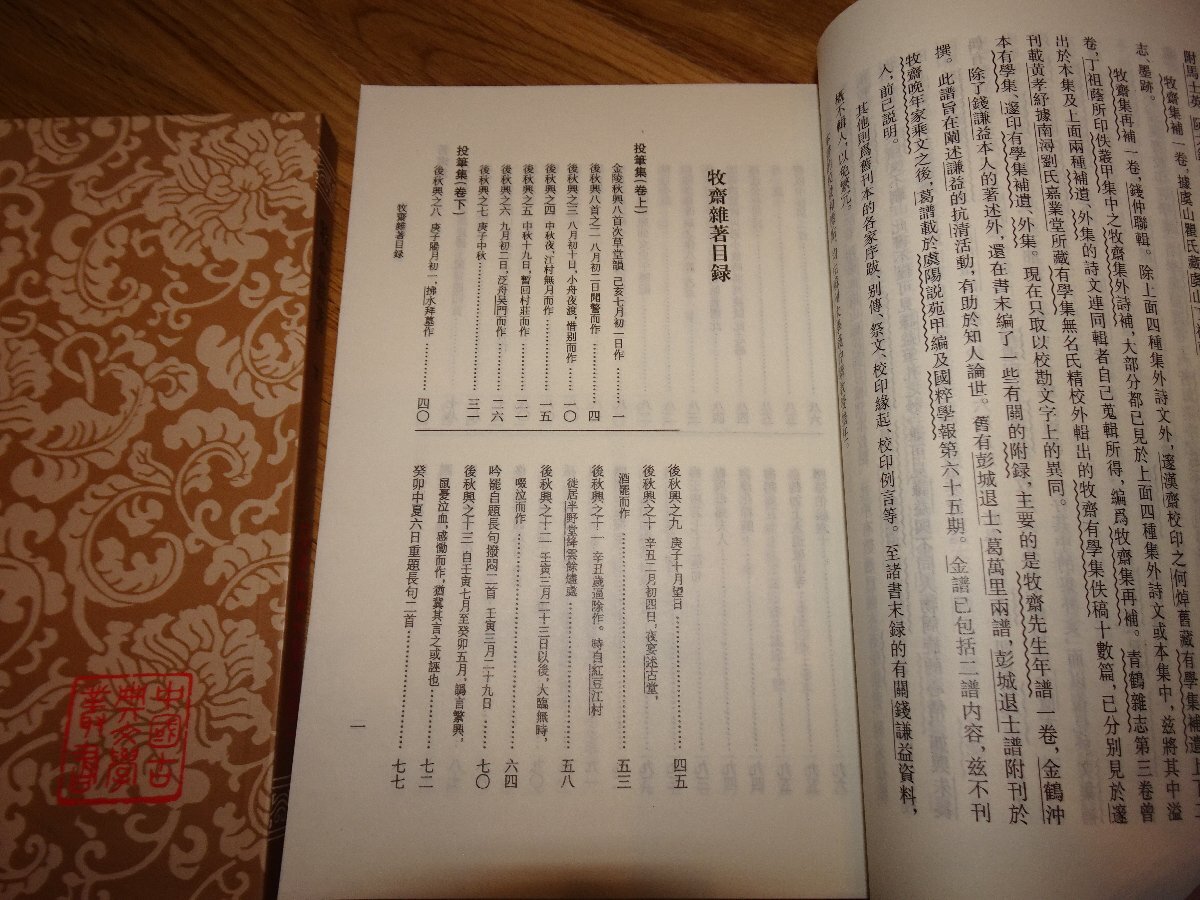 牧齋集補一卷，據虞山瞿氏藏虞山
志、墨跡。
牧齋集再補一卷，錢仲聯輯。除上面四種集外詩文外，邃漢齋校印之何焯舊藏有學集補遺上
卷，丁祖蔭所印佚叢甲集中之牧齋集外詩補，大部分都已見於上面四種集外詩文或本集中，兹將其中溢
出於本集及上面兩種補遺、外集的詩文連同輯者自己蒐輯所得，編爲牧齋集再補。青鶴雜志第三卷曾
刊載黃孝紓據南潯劉氏嘉業堂所藏有學集無名氏精校外輯出的牧齋有學集佚稿十數篇，已分別見於邃
本有學集、邃印有學集補遺、外集。現在只取以校勘文字上的異同。
除了錢謙益本人的著述外，還在書末編了一些有關的附録，主要的是牧齋先生年譜一卷，金鶴沖
撰。此譜旨在闡述謙益的抗清活動，有助於知人論世。舊有彭城退士、葛萬里兩譜，彭城退士譜附刊於
牧齋晚年家乘文之後，葛譜載於虞陽説苑甲編及國粹學報第六十五期。金譜已包括二譜内容，兹不刊
人，前已説明。
其他則爲舊刊本的各家序跋、別傳、祭文、校印緣起、校印例言等。至諸書末録的有關錢謙益資料，
概不輯人，以免繁冗。
牧齋雜著目録
投筆集（卷上）
金陵秋興八首次草堂韻 己亥七月初一日作……一
後秋興八首之二 八月初二日聞警而作……四
後秋興之三 八月初十日，小舟夜渡，惜别而作……一〇
後秋興之四 中秋夜，江村無月而作……一五
後秋興之五 中秋十九日，暫回村莊而作……二一
後秋興之六 九月初二日，泛舟吴門而作……二六
後秋興之七 庚子中秋……三一
投筆集（卷下）
後秋興之八 庚子陽月初一，拂水拜墓作……四〇
後秋興之九 庚子十月望日……四五
後秋興之十 辛丑二月初四日，夜宴述古堂，
酒罷而作……五三
後秋興之十一 辛丑歲逼除作。時自紅豆江村
徙居半野堂絳雲餘燼處……五八
後秋興之十二 壬寅三月二十三日以後，大臨無時，
啜泣而作……六四
吟罷自題長句撥悶二首 壬寅三月二十九日……七〇
後秋興之十三 自壬寅七月至癸卯五月，譌言繁興，
鼠憂泣血，感慟而作，猶冀其言之或誣也……七二
癸卯中夏六日重題長句二首……七七
牧齋雜著目録
一
中國古
典文學
叢書